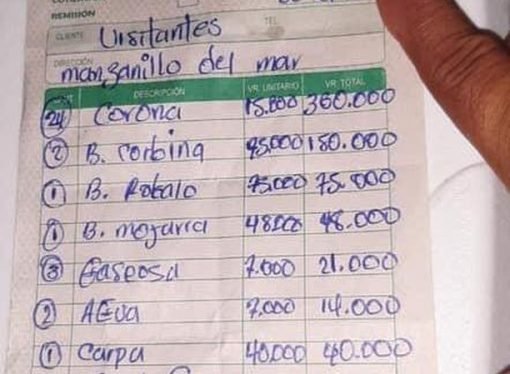 REMISIÓN
CLIENTE Visitantes TEL.
DIRECCIÓN manzanillo del mar
DESCRIPCIÓN VR. UNITARIO VR. TOTAL
24 Corona 15.000 360.000
2 B. corbina 75.000 150.000
1 B. Robalo 75.000 75.000
1 B. mojarra 48.000 48.000
3 Gaseosa 7.000 21.000
2 AGua 7.000 14.000
1 carpa 40.000 40.000